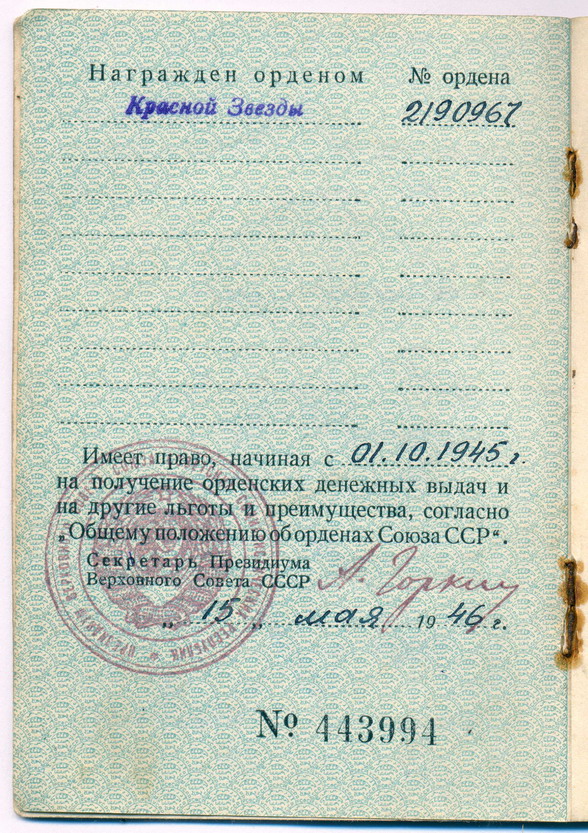 Награжден орденом № ордена
Красной Звезды 2190967
Имеет право, начиная с 01.10.1945 г.
на получение орденских денежных выдач и
на другие льготы и преимущества, согласно
„Общему положению об орденах Союза ССР“.
Секретарь Президиума
Верховного Совета СССР А. Горкин
„ 15 „ мая 1946 г.
№ 443994